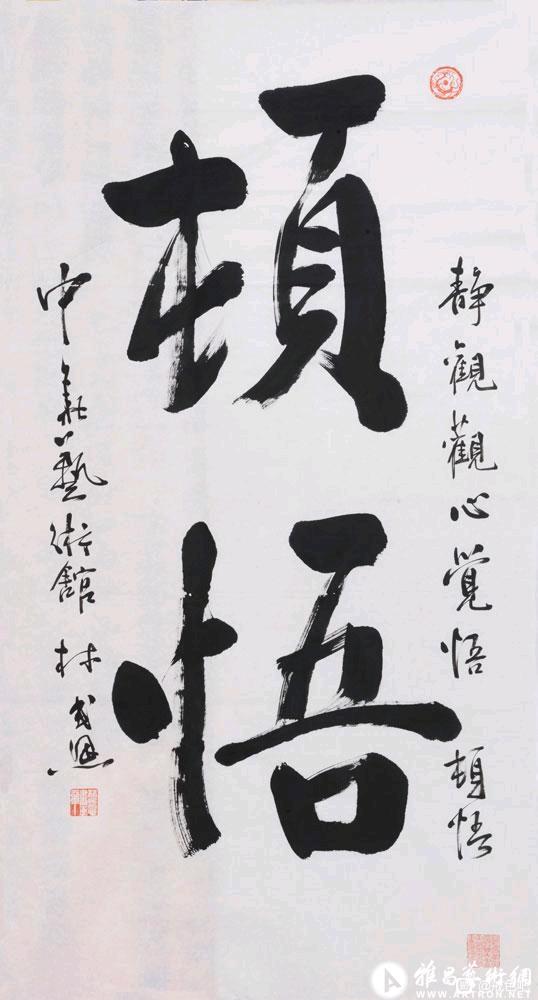 静觀觀心覺悟 頓悟
頓悟
中藝術館 林
雅昌藝術網
WWW.ARTRON.NET